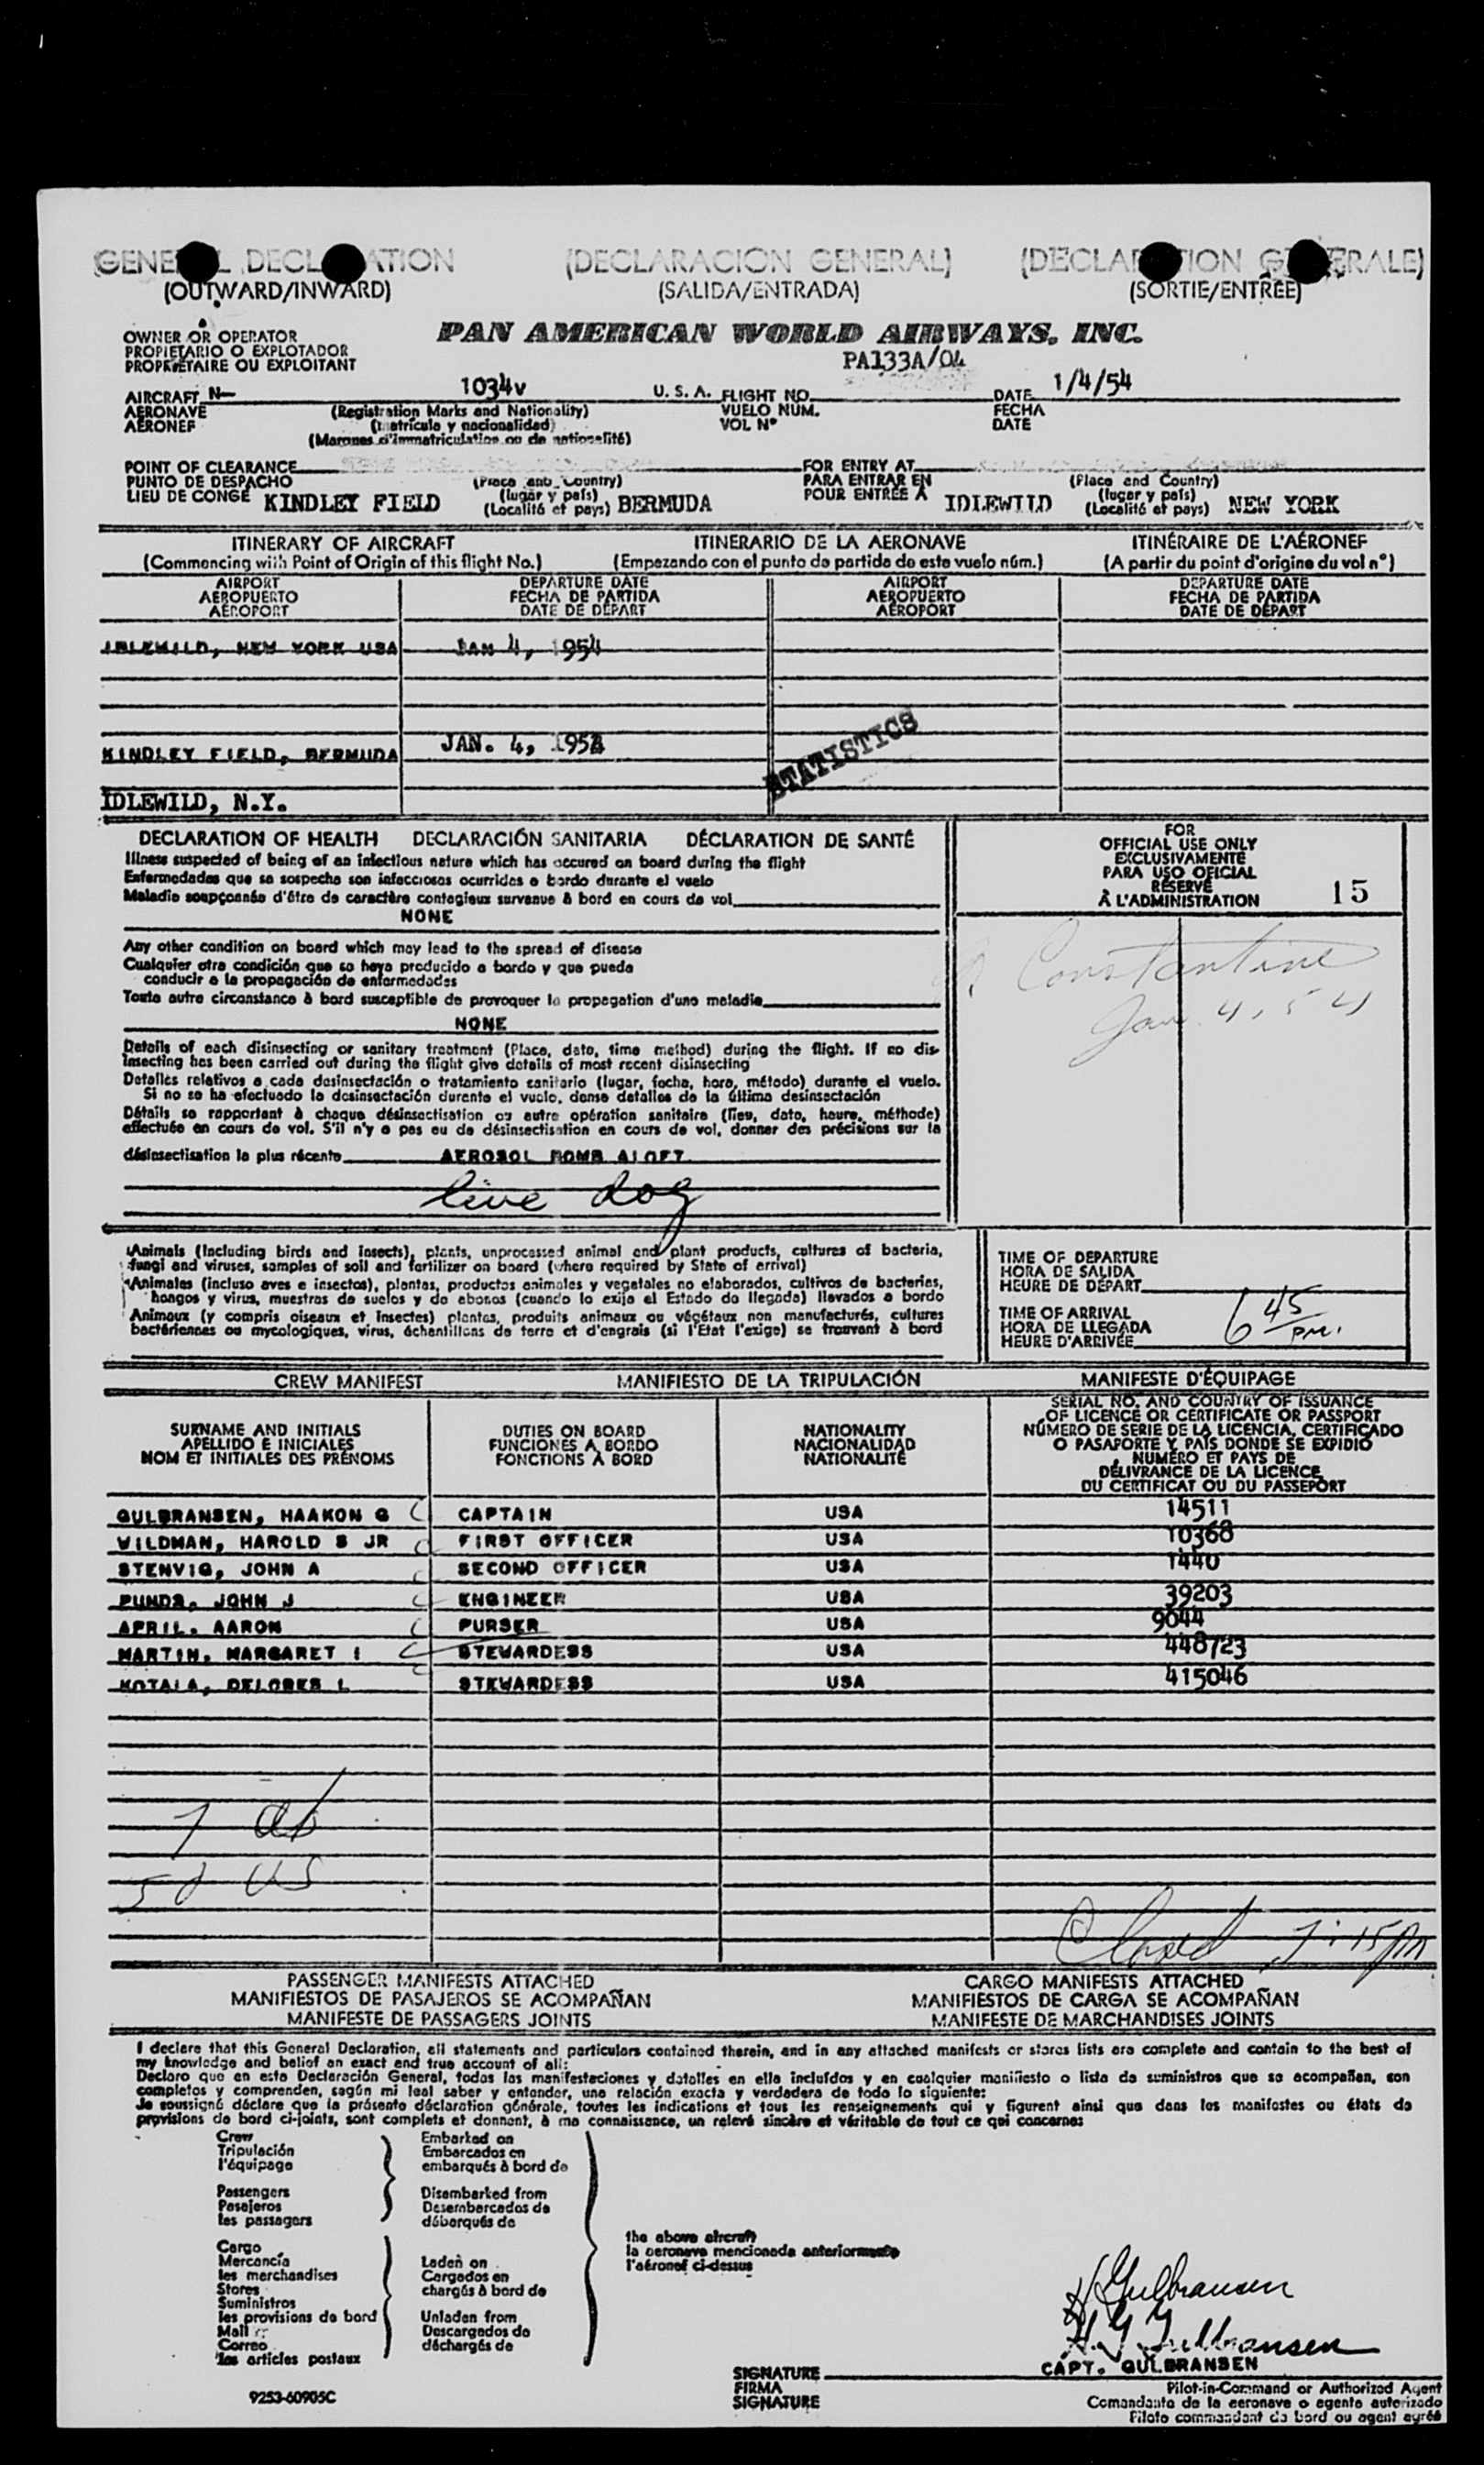 GENERAL DECLARATION (DECLARACIÓN GENERAL) (DÉCLARATION GÉNÉRALE)
(OUTWARD/INWARD) (SALIDA/ENTRADA) (SORTIE/ENTRÉE)
OWNER OR OPERATOR
PROPIETARIO O EXPLOTADOR
PROPRIÉTAIRE OU EXPLOITANT
PAN AMERICAN WORLD AIRWAYS, INC.
PA133A/04
AIRCRAFT N— 1034V U. S. A. FLIGHT NO. DATE 1/4/54
AERONAVE (Registration Marks and Nationality) VUELO NUM. FECHA
AÉRONEF (matrícula y nacionalidad) VOL Nº DATE
(Marques d'immatriculation ou de nationalité)
POINT OF CLEARANCE FOR ENTRY AT
PUNTO DE DESPACHO (Place and Country) PARA ENTRAR EN (Place and Country)
LIEU DE CONGÉ KINDLEY FIELD (lugar y país) (Localité et pays) BERMUDA POUR ENTRÉE À IDLEWILD (lugar y país) (Localité et pays) NEW YORK
ITINERARY OF AIRCRAFT ITINERARIO DE LA AERONAVE ITINÉRAIRE DE L'AÉRONEF
(Commencing with Point of Origin of this flight No.) (Empezando con el punto de partida de este vuelo núm.) (A partir du point d'origine du vol nº)
AIRPORT DEPARTURE DATE AIRPORT DEPARTURE DATE
AEROPUERTO FECHA DE PARTIDA AEROPUERTO FECHA DE PARTIDA
AÉROPORT DATE DE DÉPART AÉROPORT DATE DE DÉPART
IDLEWILD, NEW YORK USA JAN 4, 1954
KINDLEY FIELD, BERMUDA JAN. 4, 1954
STATISTICS
IDLEWILD, N.Y.
DECLARATION OF HEALTH DECLARACIÓN SANITARIA DÉCLARATION DE SANTÉ
Illness suspected of being of an infectious nature which has occured on board during the flight
Enfermedades que se sospecha son infecciosas ocurridas a bordo durante el vuelo
Maladie soupçonnée d'être de caractère contagieux survenue à bord en cours de vol
NONE
Any other condition on board which may lead to the spread of disease
Cualquier otra condición que se haya producido a bordo y que pueda
conducir a la propagación de enfermedades
Toute autre circonstance à bord susceptible de provoquer la propagation d'une maladie
NONE
Details of each disinsecting or sanitary treatment (Place, date, time method) during the flight. If no dis-
insecting has been carried out during the flight give details of most recent disinsecting
Detalles relativos a cada desinsectación o tratamiento sanitario (lugar, fecha, hora, método) durante el vuelo.
Si no se ha efectuado la desinsectación durante el vuelo, dense detalles de la última desinsectación
Détails se rapportant à chaque désinsectisation ou autre opération sanitaire (lieu, date, heure, méthode)
effectuée en cours de vol. S'il n'y a pas eu de désinsectisation en cours de vol, donner des précisions sur la
désinsectisation la plus récente AEROSOL BOMB ALOFT
live dog
FOR
OFFICIAL USE ONLY
EXCLUSIVAMENTE
PARA USO OFICIAL
RÉSERVÉ
À L'ADMINISTRATION 15
Constantine
Jan. 4, 54
Animals (Including birds and insects), plants, unprocessed animal and plant products, cultures of bacteria,
fungi and viruses, samples of soil and fertilizer on board (where required by State of arrival)
Animales (incluso aves e insectos), plantas, productos animales y vegetales no elaborados, cultivos de bacterias,
hongos y virus, muestras de suelos y de abonos (cuando lo exija el Estado de llegada) llevados a bordo
Animaux (y compris oiseaux et insectes) plantes, produits animaux ou végétaux non manufacturés, cultures
bactériennes ou mycologiques, virus, échantillons de terre et d'engrais (si l'Etat l'exige) se trouvant à bord
TIME OF DEPARTURE
HORA DE SALIDA
HEURE DE DÉPART
TIME OF ARRIVAL
HORA DE LLEGADA
HEURE D'ARRIVÉE 6 45 pm.
CREW MANIFEST MANIFIESTO DE LA TRIPULACIÓN MANIFESTE D'ÉQUIPAGE
SURNAME AND INITIALS
APELLIDO E INICIALES
NOM ET INITIALES DES PRÉNOMS
DUTIES ON BOARD
FUNCIONES A BORDO
FONCTIONS À BORD
NATIONALITY
NACIONALIDAD
NATIONALITÉ
SERIAL NO. AND COUNTRY OF ISSUANCE
OF LICENCE OR CERTIFICATE OR PASSPORT
NÚMERO DE SERIE DE LA LICENCIA, CERTIFICADO
O PASAPORTE Y PAÍS DONDE SE EXPIDIÓ
NUMÉRO ET PAYS DE
DÉLIVRANCE DE LA LICENCE,
DU CERTIFICAT OU DU PASSEPORT
GULBRANSEN, HAAKON G CAPTAIN USA 14511
WILDMAN, HAROLD S JR FIRST OFFICER USA 10368
STENVIG, JOHN A SECOND OFFICER USA 1440
PUNDS, JOHN J ENGINEER USA 39203
APRIL, AARON PURSER USA 9044
MARTIN, MARGARET I STEWARDESS USA 448723
KOTALA, DELORES L STEWARDESS USA 415046
US
Closed 7:15 pm
PASSENGER MANIFESTS ATTACHED CARGO MANIFESTS ATTACHED
MANIFIESTOS DE PASAJEROS SE ACOMPAÑAN MANIFIESTOS DE CARGA SE ACOMPAÑAN
MANIFESTE DE PASSAGERS JOINTS MANIFESTE DE MARCHANDISES JOINTS
I declare that this General Declaration, all statements and particulars contained therein, and in any attached manifests or stores lists are complete and contain to the best of
my knowledge and belief an exact and true account of all:
Declaro que en esta Declaración General, todas las manifestaciones y detalles en ella incluídos y en cualquier manifiesto o lista de suministros que se acompañan, son
completos y comprenden, según mi leal saber y entender, una relación exacta y verdadera de todo lo siguiente:
Je soussigné déclare que la présente déclaration générale, toutes les indications et tous les renseignements qui y figurent ainsi que dans les manifestes ou états de
provisions de bord ci-joints, sont complets et donnent, à ma connaissance, un relevé sincère et véritable de tout ce qui concerne:
Crew
Tripulación
l'équipage
Passengers
Pasajeros
les passagers
Embarked on
Embarcados en
embarqués à bord de
Disembarked from
Desembarcados de
débarqués de
Cargo
Mercancía
les merchandises
Stores
Suministros
les provisions de bord
Mail
Correo
les articles postaux
Laden on
Cargados en
chargés à bord de
Unladen from
Descargados de
déchargés de
the above aircraft
la aeronave mencionada anteriormente
l'aéronef ci-dessus
H Gulbransen
H. G Gulbransen
CAPT. GULBRANSEN
SIGNATURE
FIRMA
SIGNATURE
Pilot-in-Command or Authorized Agent
Comandante de la aeronave o agente autorizado
Pilote commandant de bord ou agent agréé
9253-60905C